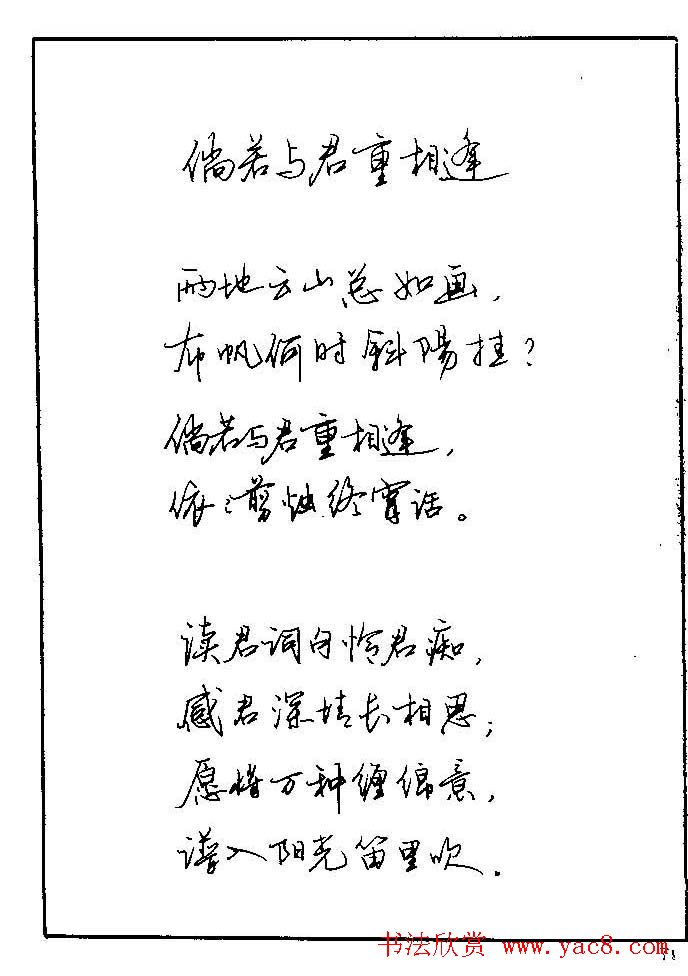 倘若与君重相逢
两地云山总如画，
布帆何时斜陽挂？
倘若与君重相逢，
依：剪烛终宵话。
读君词句怜君痴，
感君深情长相思；
愿将万种缠绵意，
谱入阳光笛里吹．
书法欣赏 www.yac8.com